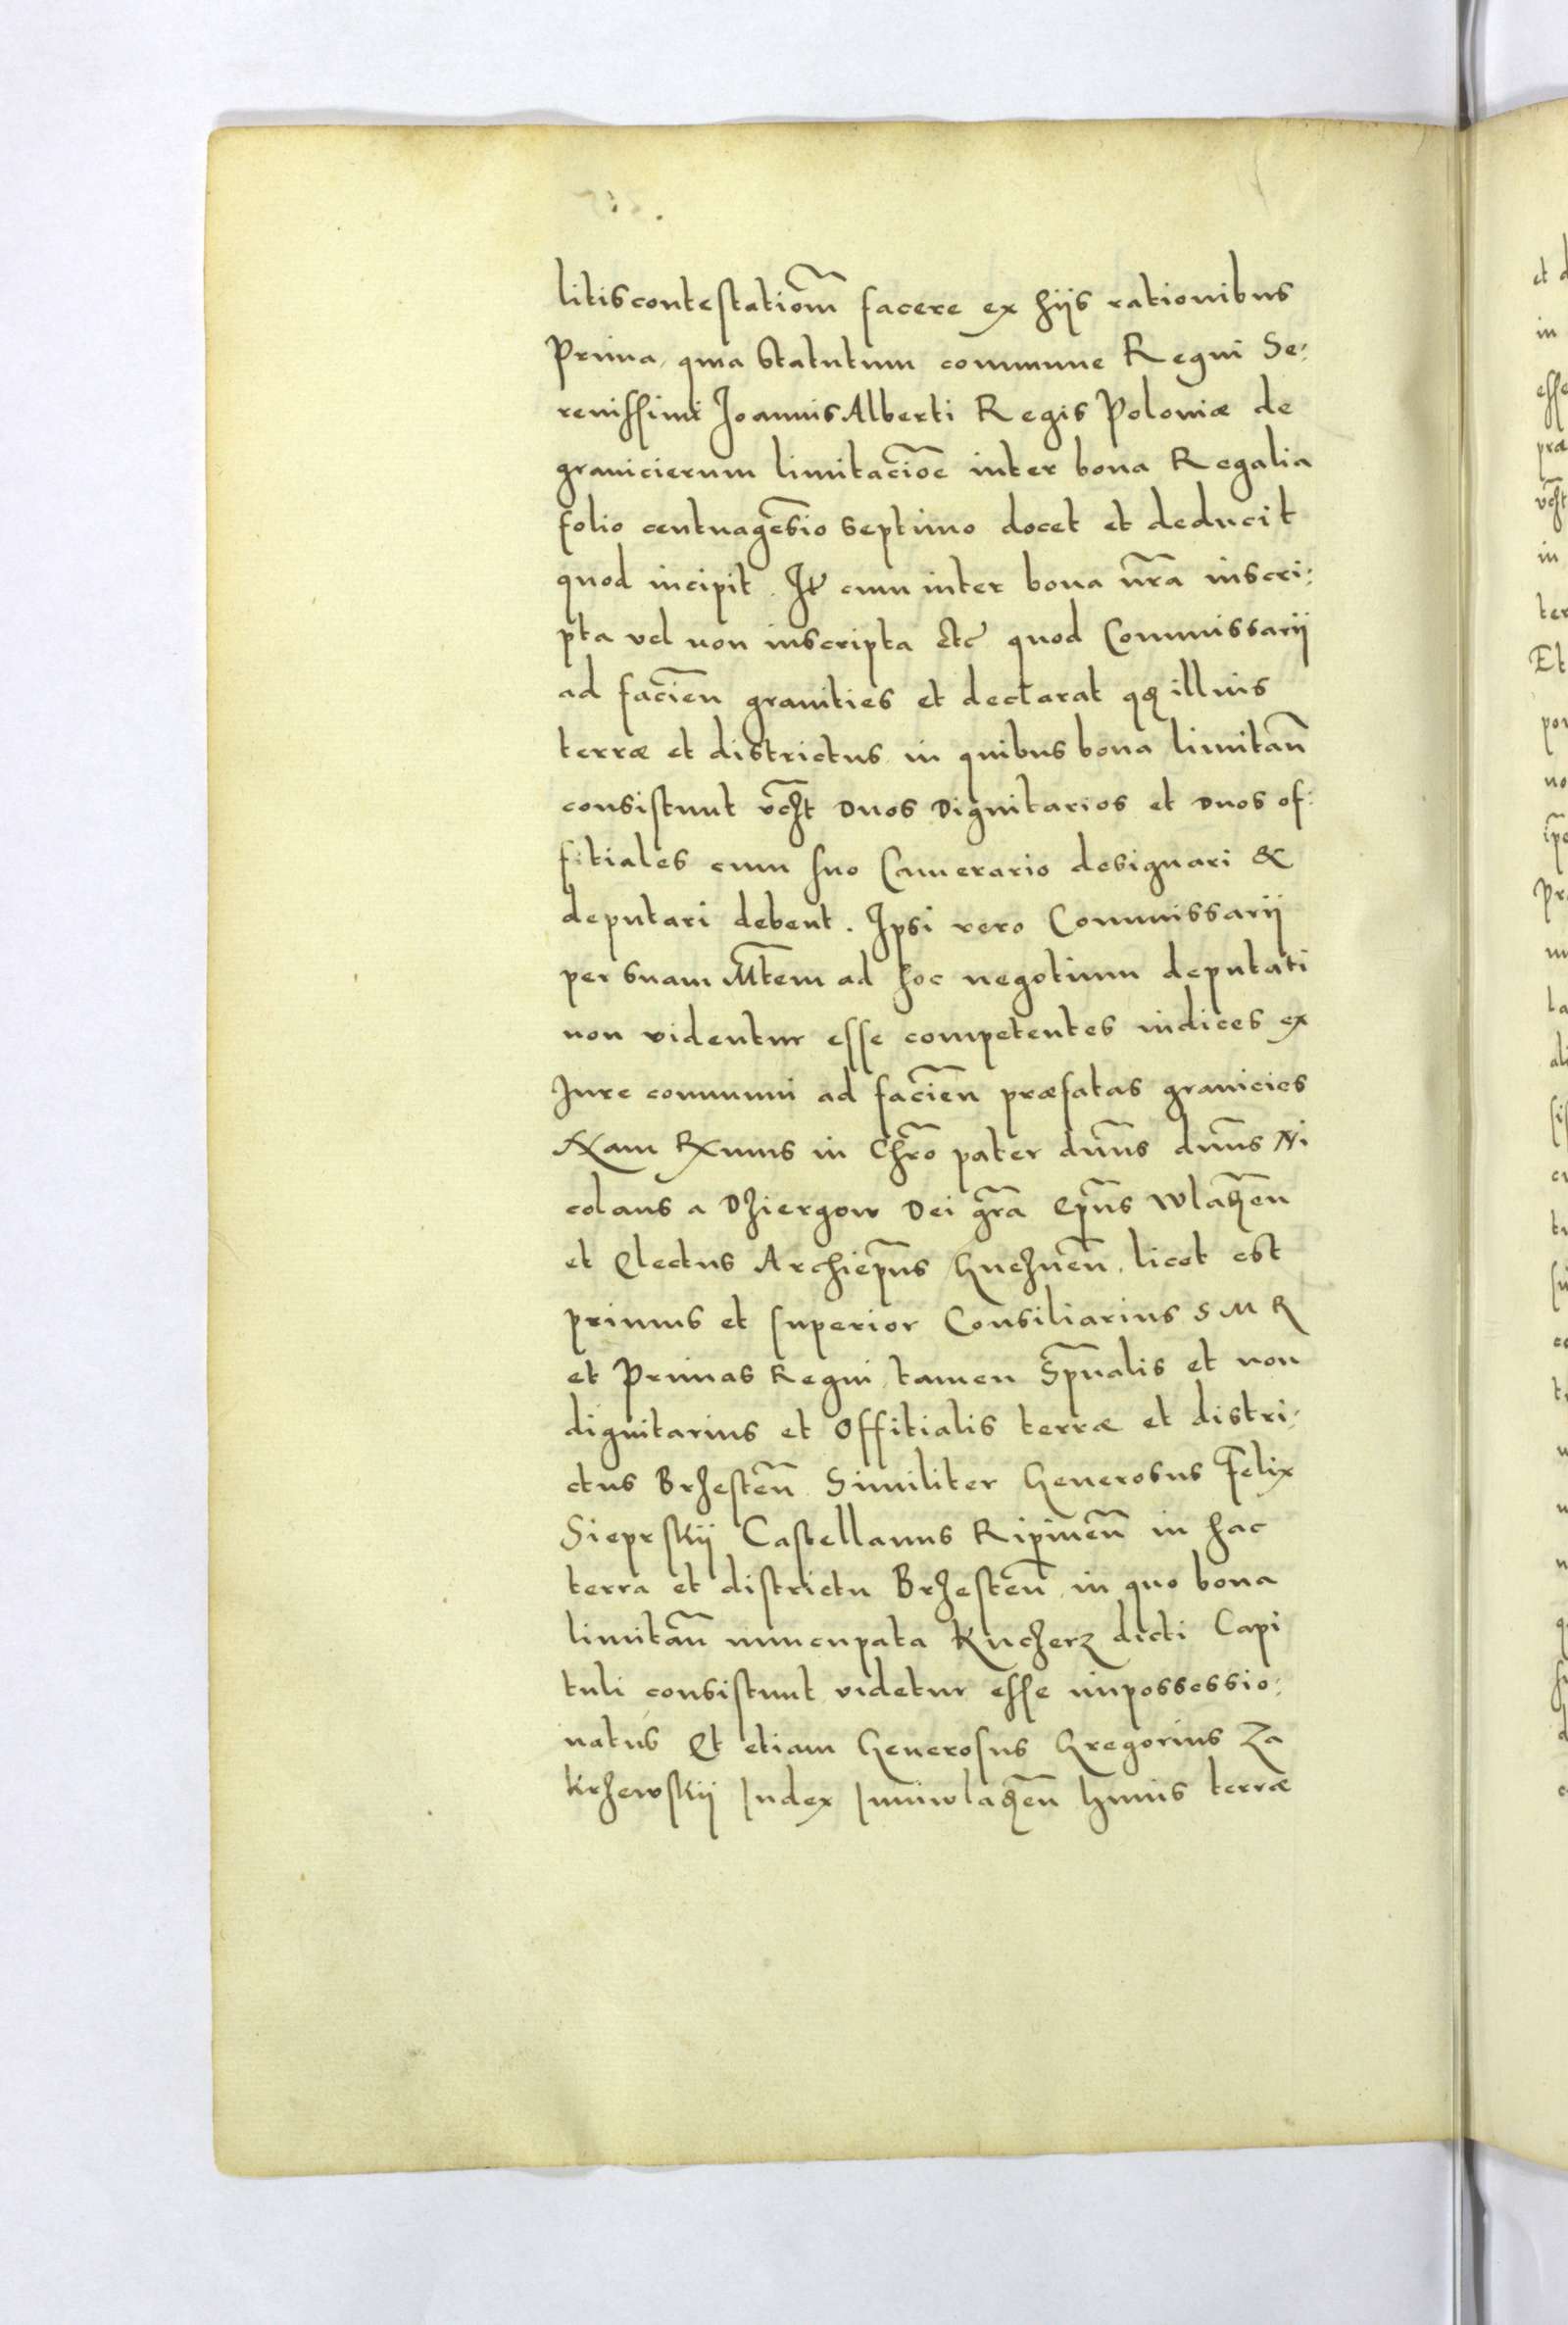 litis contestatiom̃ facere ex hijs rationibus
Prima, quia statutum commune Regni Se:
renissimi Joannis Alberti Regis Poloniæ de
granicierum limitacioẽ inter bona Regalia
folio centuagesĩo septimo docet et deducit
quod incipit. It̃ cum inter bona nr̃a inscri:
pta vel non inscripta etc̃ quod Commissarij
ad facien̄ granities et declarat qꝫ illius
terræ et districtus in quibus bona limitan̄
consistunt vcꝫt duos Dignitarios et duos of:
fitiales cum suo Camerario designari &
deputari debent. Ipsi vero Commissarij
per suam Mt̃em ad hoc negotium deputati
non videntur esse competentes iudices ex
Jure communi ad facien̄ præfatas granicies
Nam Rx̃mus in Chr̃o pater dñns dñns Ni
colaus a Dzierzgow Dei gr̃a Ep̃us Wlad̃en
et Electus Archiep̃us Gneznen̄, licet est
primus et superior Consiliarius S M R
et Primas Regni, tamen Sp̃ualis et non
dignitarius et Offitialis terræ et distri:
ctus Brzesten̄. Similiter Generosus Felix
Sieprskij Castellanus Ripinen̄ in hac
terra et districtu Brzesten̄, in quo bona
limitan̄ nuncupata Kucherz dicti Capi
tuli consistunt, videtur esse impossessio:
natus Et etiam Generosus Gregorius Za
krzewskij Judex Juniwlad̃en huius terræ
et d
in
esse
præ
vcꝫt
in
ter
Et